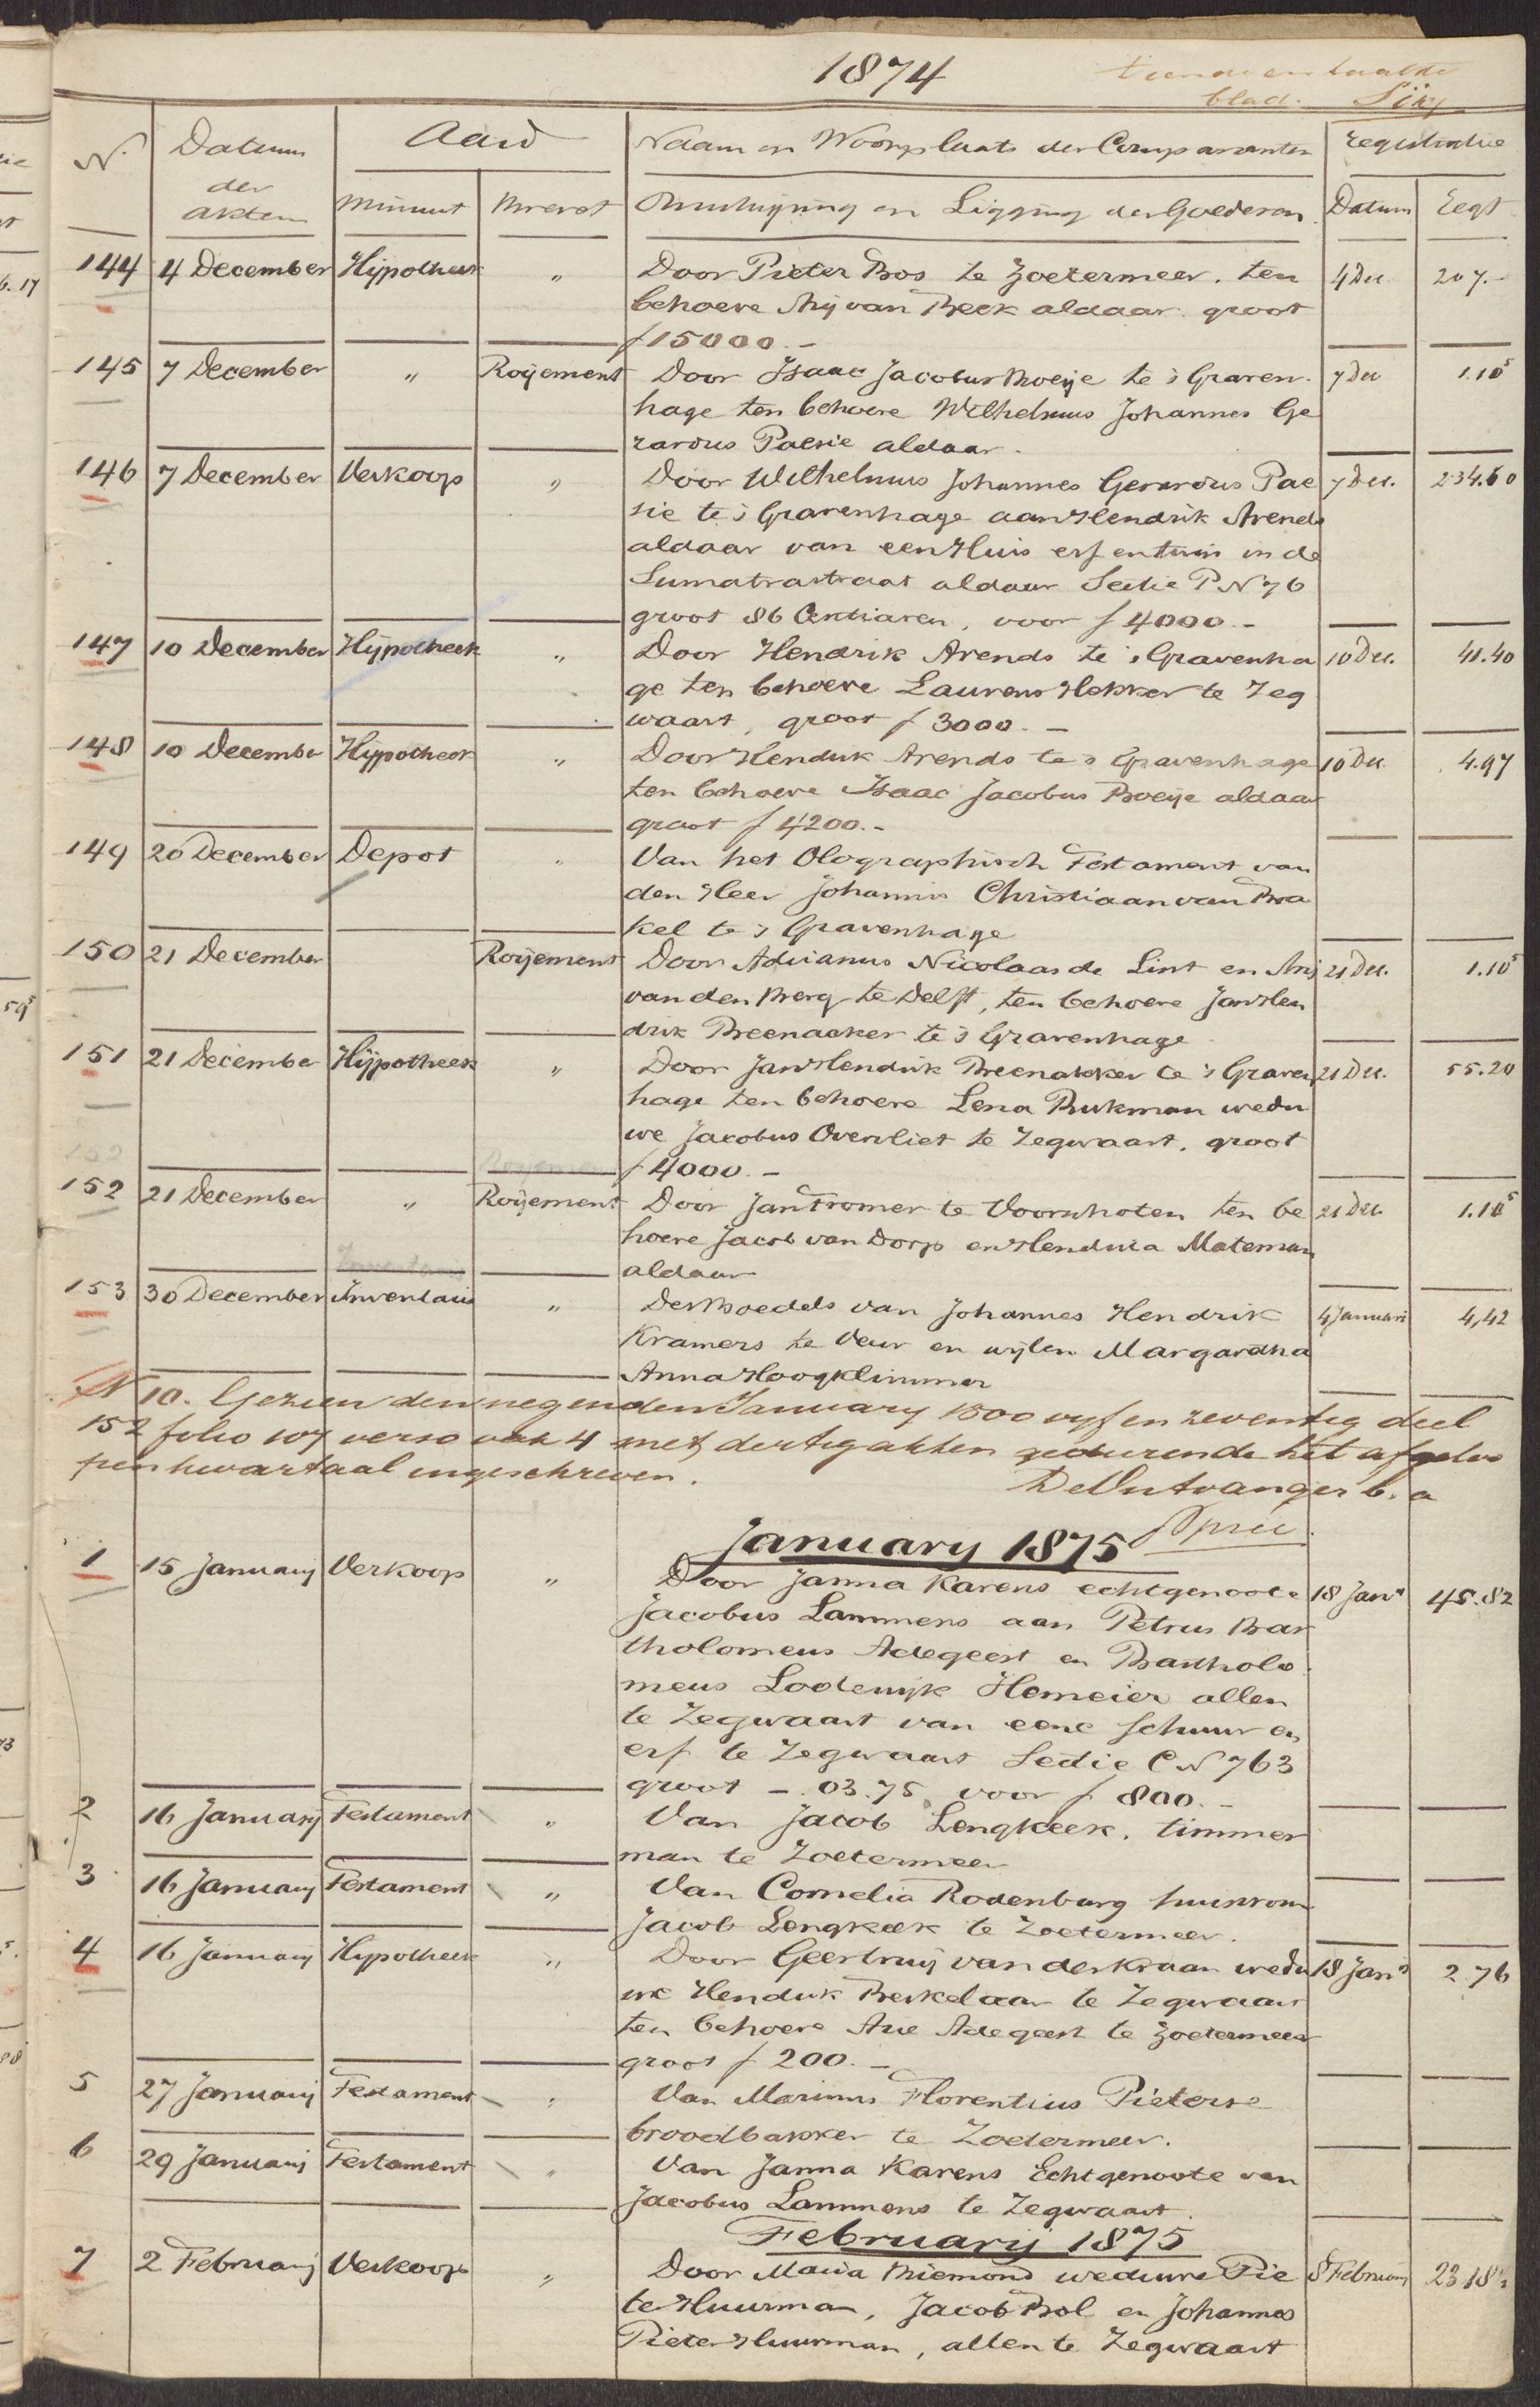 1874
blad.
N. Datum der akten Aard Naam en Woonplaats der Comparanten registratie
Minuut Brevet Omschrijving en Ligging der Goederen Datum Regt
144 4 December Hijpotheek „ Door Pieter Bos te Zoetermeer, ten 4 Dec. 207.-
behoeve Arij van Beek aldaar groot
f 15000.-
145 7 December „ Roijement Door Isaac Jacobus Boeije te 's Graven 7 Dec 1.10⁵
hage ten behoeve Wilhelmus Johannes Ge
rardus Paesie aldaar.
146 7 December Verkoop „ Door Wilhelmus Johannes Gerardus Pae 7 Dec. 234.60
sie te 's Gravenhage aan Hendrik Arends
aldaar van een Huis erf en tuin in de
Sumatrastraat aldaar Sectie P N 76
groot 86 Centiaren, voor f 4000.-
147 10 December Hijpotheek „ Door Hendrik Arends te 's Gravenha 10 Dec. 41.40
ge ten behoeve Laurens Hekker te Zeg
waart, groot f 3000.-
148 10 December Hijpotheek „ Door Hendrik Arends te 's Gravenhage 10 Dec. 4.97
ten behoeve Isaac Jacobus Boeije aldaar
groot f 4200.-
149 20 December Depot „ Van het Olographisch Testament van
den Heer Johannis Christiaan van Bra
kel te 's Gravenhage
150 21 December Roijement Door Adrianus Nicolaas de Lint en Arij 21 Dec. 1.10⁵
van den Berg te Delft, ten behoeve Jan Hen
drik Breenacker te 's Gravenhage
151 21 December Hijpotheek „ Door Jan Hendrik Breenakker te 's Graven 21 Dec. 55.20
hage ten behoeve Lena Brukman wedu
we Jacobus Overvliet te Zegwaart, groot
f 4000.-
152 21 December „ Roijement Door Jan Tromer te Voorschoten ten be 21 Dec. 1.10⁵
hoeve Jacob van Dorp en Hendrica Mateman
aldaar
153 30 December Inventaris „ Des Boedels van Johannes Hendrik 4 Januari 4,42
Kramers te Veur en wijlen Margaretha
Anna Hoogklimmer
N 10. Gezien den negenden January 1800 vyf en zeventig deel
152 folio 107 verso vak 4 met dertig akten gedurende het afgeloo
pen kwartaal ingeschreven.
De Ontvanger b. a
January 1875
1 15 Januarij Verkoop „ Door Janna Karens echtgenoote 18 Janⁱ 45.82
Jacobus Lammens aan Petrus Bar
tholomeus Adegeest en Bartholo
meus Lodewijk Hemeier allen
te Zegwaart van eene schuur en
erf te Zegwaart Sectie C N 763
groot -.03.75, voor f 800.-
2 16 Januarij Testament „ Van Jacob Lengkeek, timmer
man te Zoetermeer
3 16 Januarij Testament „ Van Cornelia Rodenburg huisvrouw
Jacob Lengkeek te Zoetermeer.
4 16 Januarij Hypotheek „ Door Geertruij van der Kraan wedu 18 Janⁱ 2.76
we Hendrik Berkelaar te Zegwaart
ten behoeve Arie Adegeest te Zoetermeer
groot f 200.-
5 27 Januarij Testament „ Van Marinus Florentius Pieterse
broodbakker te Zoetermeer.
6 29 Januarij Testament „ Van Janna Karens Echtgenoote van
Jacobus Lammens te Zegwaart.
Februarij 1875
7 2 Februarij Verkoop „ Door Maria Biemond weduwe Pie 8 Februarij 23.18½
ter Huurman, Jacob Bol en Johannes
Pieter Huurman, allen te Zegwaart